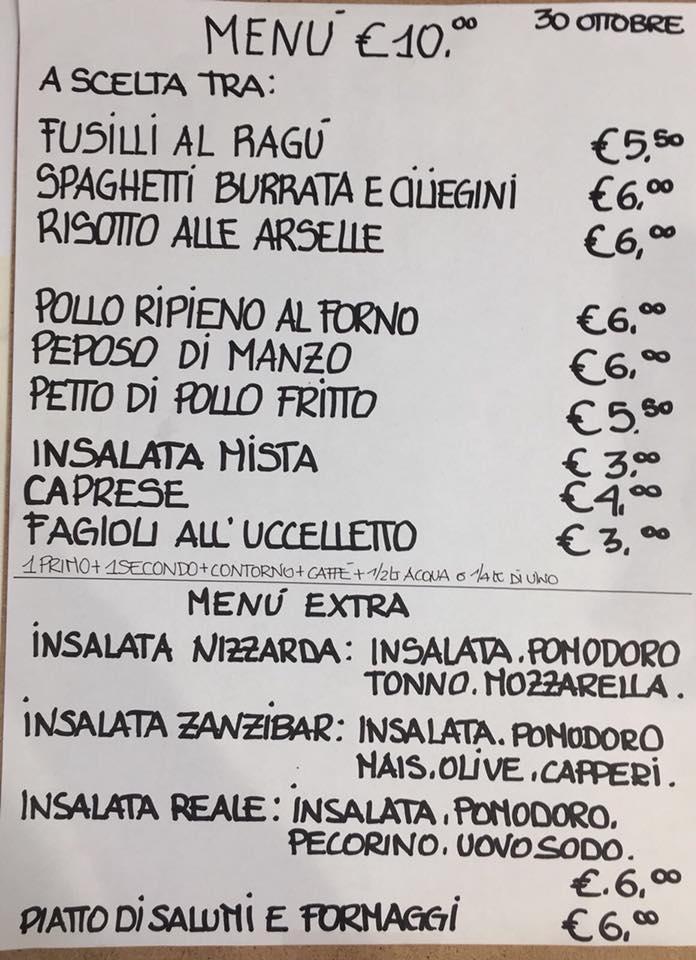 MENÚ €10.00
30 OTTOBRE
A SCELTA TRA:
FUSILLI AL RAGÚ €5,50
SPAGHETTI BURRATA E CILIEGINI €6,00
RISOTTO ALLE ARSELLE €6,00
POLLO RIPIENO AL FORNO €6,00
PEPOSO DI MANZO €6,00
PETTO DI POLLO FRITTO €5.50
INSALATA MISTA € 3,00
CAPRESE €4,00
FAGIOLI ALL'UCCELLETTO € 3,00
1 PRIMO + 1 SECONDO + CONTORNO + CAFFÉ + 1/2 lt ACQUA o 1/4 lt DI VINO
MENÚ EXTRA
INSALATA NIZZARDA: INSALATA. POMODORO
TONNO. MOZZARELLA.
INSALATA ZANZIBAR: INSALATA. POMODORO
MAIS. OLIVE. CAPPERI.
INSALATA REALE: INSALATA, POMODORO,
PECORINO. UOVO SODO.
€.6,00
PIATTO DI SALUMI E FORMAGGI €6,00